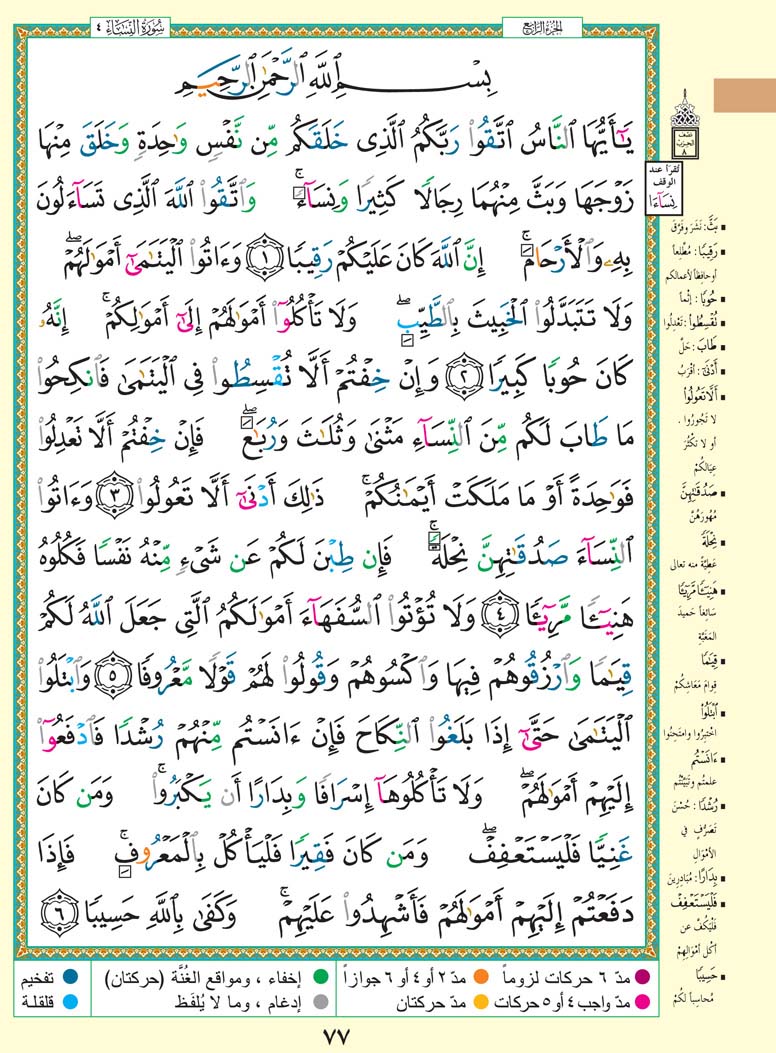 سُورَةُ النِّسَاءِ ٤
الجُزْءُ الرَّابِعُ
بِسْمِ ٱللَّهِ ٱلرَّحْمَٰنِ ٱلرَّحِيمِ
يَٰٓأَيُّهَا ٱلنَّاسُ ٱتَّقُوا۟ رَبَّكُمُ ٱلَّذِى خَلَقَكُم مِّن نَّفْسٍ وَٰحِدَةٍ وَخَلَقَ مِنْهَا
زَوْجَهَا وَبَثَّ مِنْهُمَا رِجَالًا كَثِيرًا وَنِسَآءً ۚ وَٱتَّقُوا۟ ٱللَّهَ ٱلَّذِى تَسَآءَلُونَ
بِهِۦ وَٱلْأَرْحَامَ ۚ إِنَّ ٱللَّهَ كَانَ عَلَيْكُمْ رَقِيبًا ١ وَءَاتُوا۟ ٱلْيَتَٰمَىٰٓ أَمْوَٰلَهُمْ ۖ
وَلَا تَتَبَدَّلُوا۟ ٱلْخَبِيثَ بِٱلطَّيِّبِ ۖ وَلَا تَأْكُلُوٓا۟ أَمْوَٰلَهُمْ إِلَىٰٓ أَمْوَٰلِكُمْ ۚ إِنَّهُۥ
كَانَ حُوبًا كَبِيرًا ٢ وَإِنْ خِفْتُمْ أَلَّا تُقْسِطُوا۟ فِى ٱلْيَتَٰمَىٰ فَٱنكِحُوا۟
مَا طَابَ لَكُم مِّنَ ٱلنِّسَآءِ مَثْنَىٰ وَثُلَٰثَ وَرُبَٰعَ ۖ فَإِنْ خِفْتُمْ أَلَّا تَعْدِلُوا۟
فَوَٰحِدَةً أَوْ مَا مَلَكَتْ أَيْمَٰنُكُمْ ۚ ذَٰلِكَ أَدْنَىٰٓ أَلَّا تَعُولُوا۟ ٣ وَءَاتُوا۟
ٱلنِّسَآءَ صَدُقَٰتِهِنَّ نِحْلَةً ۚ فَإِن طِبْنَ لَكُمْ عَن شَىْءٍ مِّنْهُ نَفْسًا فَكُلُوهُ
هَنِيٓـًٔا مَّرِيٓـًٔا ٤ وَلَا تُؤْتُوا۟ ٱلسُّفَهَآءَ أَمْوَٰلَكُمُ ٱلَّتِى جَعَلَ ٱللَّهُ لَكُمْ
قِيَٰمًا وَٱرْزُقُوهُمْ فِيهَا وَٱكْسُوهُمْ وَقُولُوا۟ لَهُمْ قَوْلًا مَّعْرُوفًا ٥ وَٱبْتَلُوا۟
ٱلْيَتَٰمَىٰ حَتَّىٰٓ إِذَا بَلَغُوا۟ ٱلنِّكَاحَ فَإِنْ ءَانَسْتُم مِّنْهُمْ رُشْدًا فَٱدْفَعُوٓا۟
إِلَيْهِمْ أَمْوَٰلَهُمْ ۖ وَلَا تَأْكُلُوهَآ إِسْرَافًا وَبِدَارًا أَن يَكْبَرُوا۟ ۚ وَمَن كَانَ
غَنِيًّا فَلْيَسْتَعْفِفْ ۖ وَمَن كَانَ فَقِيرًا فَلْيَأْكُلْ بِٱلْمَعْرُوفِ ۚ فَإِذَا
دَفَعْتُمْ إِلَيْهِمْ أَمْوَٰلَهُمْ فَأَشْهِدُوا۟ عَلَيْهِمْ ۚ وَكَفَىٰ بِٱللَّهِ حَسِيبًا ٦
نصف
الحزب
٨
تُقرأ عند
الوقف
نِسَآءَا
بَثَّ: نَشَرَ وَفَرَّقَ
رَقِيبًا: مُطَّلِعاً
أو حافِظاً لأعمالكم
حُوبًا: إِثْماً
تُقْسِطُوا۟: تَعْدِلُوا
طَابَ: حَلَّ
أَدْنَىٰ: أَقْرَبُ
أَلَّا تَعُولُوا۟
لا تَجُورُوا.
أو لا تَكْثُرَ
عِيَالُكُمْ
صَدُقَٰتِهِنَّ
مُهُورَهُنَّ
نِحْلَةً
عَطِيَّةً منه تعالى
هَنِيٓـًٔا مَّرِيٓـًٔا
سَائِغاً حَمِيدَ
المَغَبَّةِ
قِيَٰمًا
قِوَامَ مَعَاشِكُمْ
ٱبْتَلُوا۟
اخْتَبِرُوا وامتَحِنُوا
ءَانَسْتُم
علمتُم وتَبَيَّنْتُم
رُشْدًا: حُسْنَ
تَصَرُّفٍ في
الأَمْوَالِ
بِدَارًا: مُبَادِرِينَ
فَلْيَسْتَعْفِفْ
فَلْيَكُفَّ عن
أكل أَمْوَالِهِمْ
حَسِيبًا
مُحاسِباً لَكُمْ
مدّ ٦ حركات لزوماً
مدّ ٢ أو ٤ أو ٦ جوازاً
إخفاء ، ومواقع الغُنَّة (حركتان)
تفخيم
مدّ واجب ٤ أو ٥ حركات
مدّ حركتان
إدغام ، وما لا يُلفَظ
قلقلة
٧٧